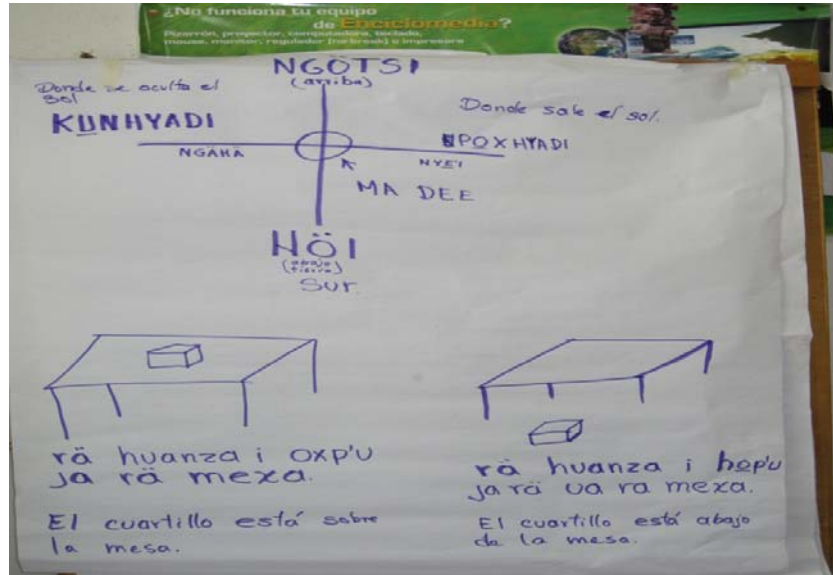 ¿No funciona tu equipo
de Enciclomedia?
Pizarrón, proyector, computadora, teclado,
mouse, monitor, regulador (no break) e impresora
NGÖTSI
(arriba)
Donde se oculta el
sol
Donde sale el sol.
KU̱NHYADI
POXHYADI
NGÄHÄ
NYE̱I
MA DEE
HÖI
(abajo
tierra)
Sur
rä huanza i OXP'U
ja rä mexa.
El cuartillo está sobre
la mesa.
rä huanza i ho̱p'u
ja rä ua ra mexa.
El cuartillo está abajo
de la mesa.